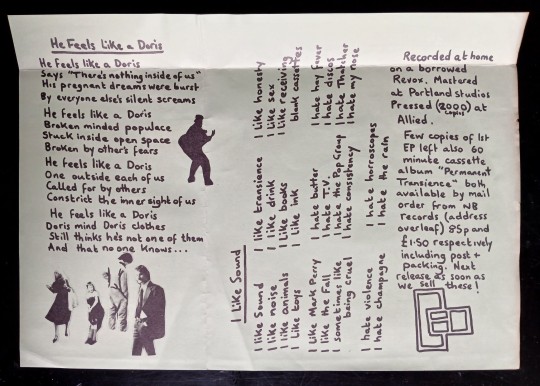 He Feels Like a Doris
He Feels like a Doris
Says "There's nothing inside of us"
His pregnant dreams were burst
By everyone else's silent screams
He feels like a Doris
Broken minded populace
Stuck inside open space
Broken by other's fears
He feels like a Doris
One outside each of us
Called for by others
Constrict the inner sight of us
He feels like a Doris
Doris mind Doris clothes
Still thinks he's not one of them
And that no one knows...
I Like Sound
I like Sound
I like noise
I like animals
I like toys
I like Mark Perry
I like the Fall
sometimes I like
being cruel
I hate violence
I hate champagne
I like transience
I like drink
I like books
I like ink
I hate butter
I hate T.V.
I hate the Pop Group
I hate consistency
I hate horroscopes
I hate the rain
I like honesty
I like sex
I like receiving
blank cassettes
I hate hay fever
I hate discos
I hate Thatcher
I hate my nose
Recorded at home
on a borrowed
Revox. Mastered
at Portland Studios
Pressed (2000 copies) at
Allied.
Few copies of 1st
EP left also 60
minute cassette
album "Permanent
Transience" both
available by mail
order from NB
records (address
overleaf) 85p and
£1.50 respectively
including post +
packing. Next
release as soon as
we sell these!